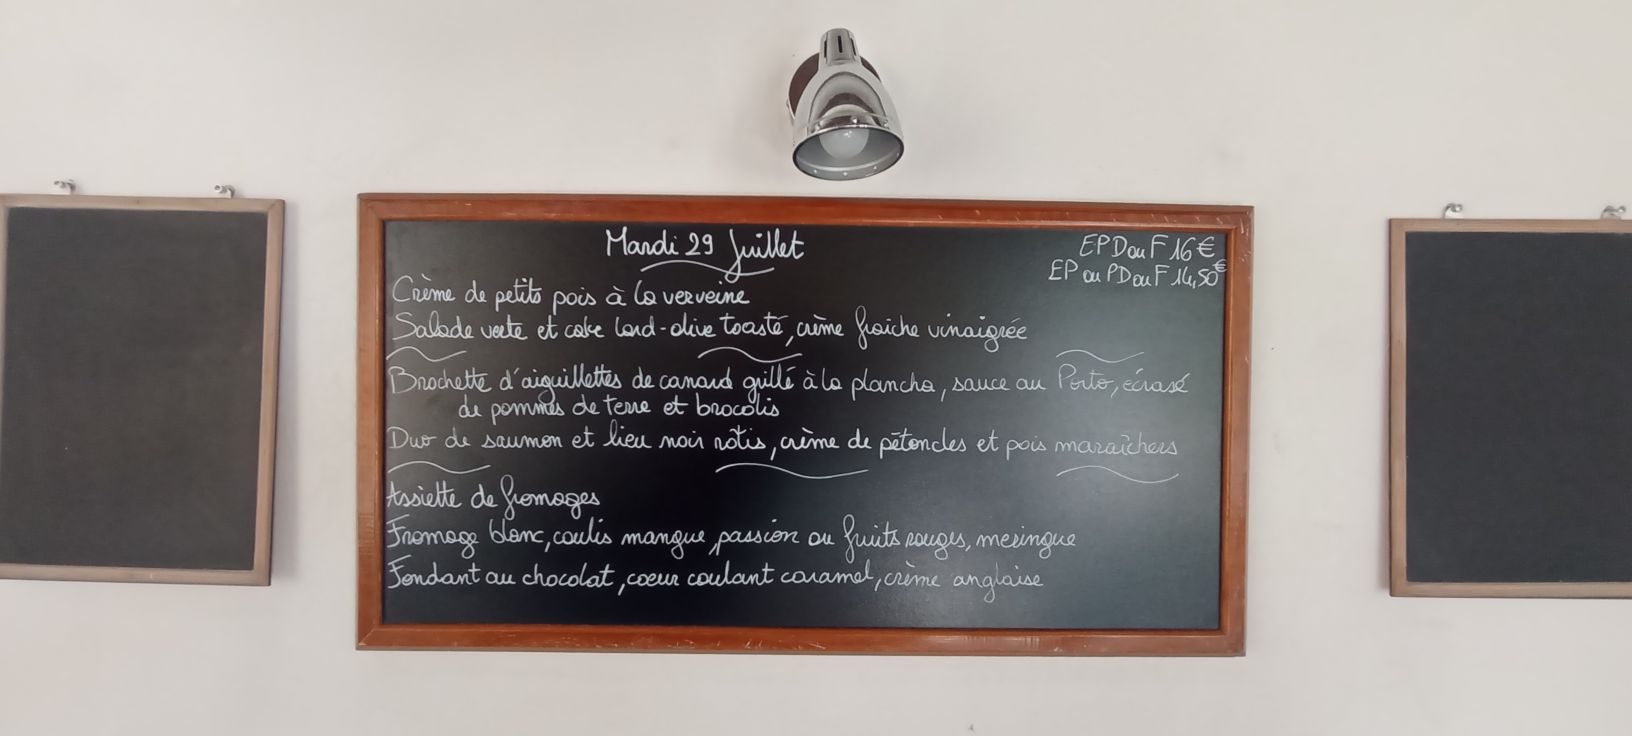 Mardi 29 Juillet
EPDouF 16€
EP ou PDouF 14,50€
Crème de petits pois à la verveine
Salade verte et cake lard-olive toasté, crème fraiche vinaigrée
Brochette d'aiguillettes de canard grillé à la plancha, sauce au Porto, écrasé
de pommes de terre et brocolis
Duo de saumon et lieu noir rôtis, crème de pétoncles et pois maraîchers
Assiette de fromages
Fromage blanc, coulis mangue, passion ou fruits rouges, meringue
Fondant au chocolat, coeur coulant caramel, crème anglaise